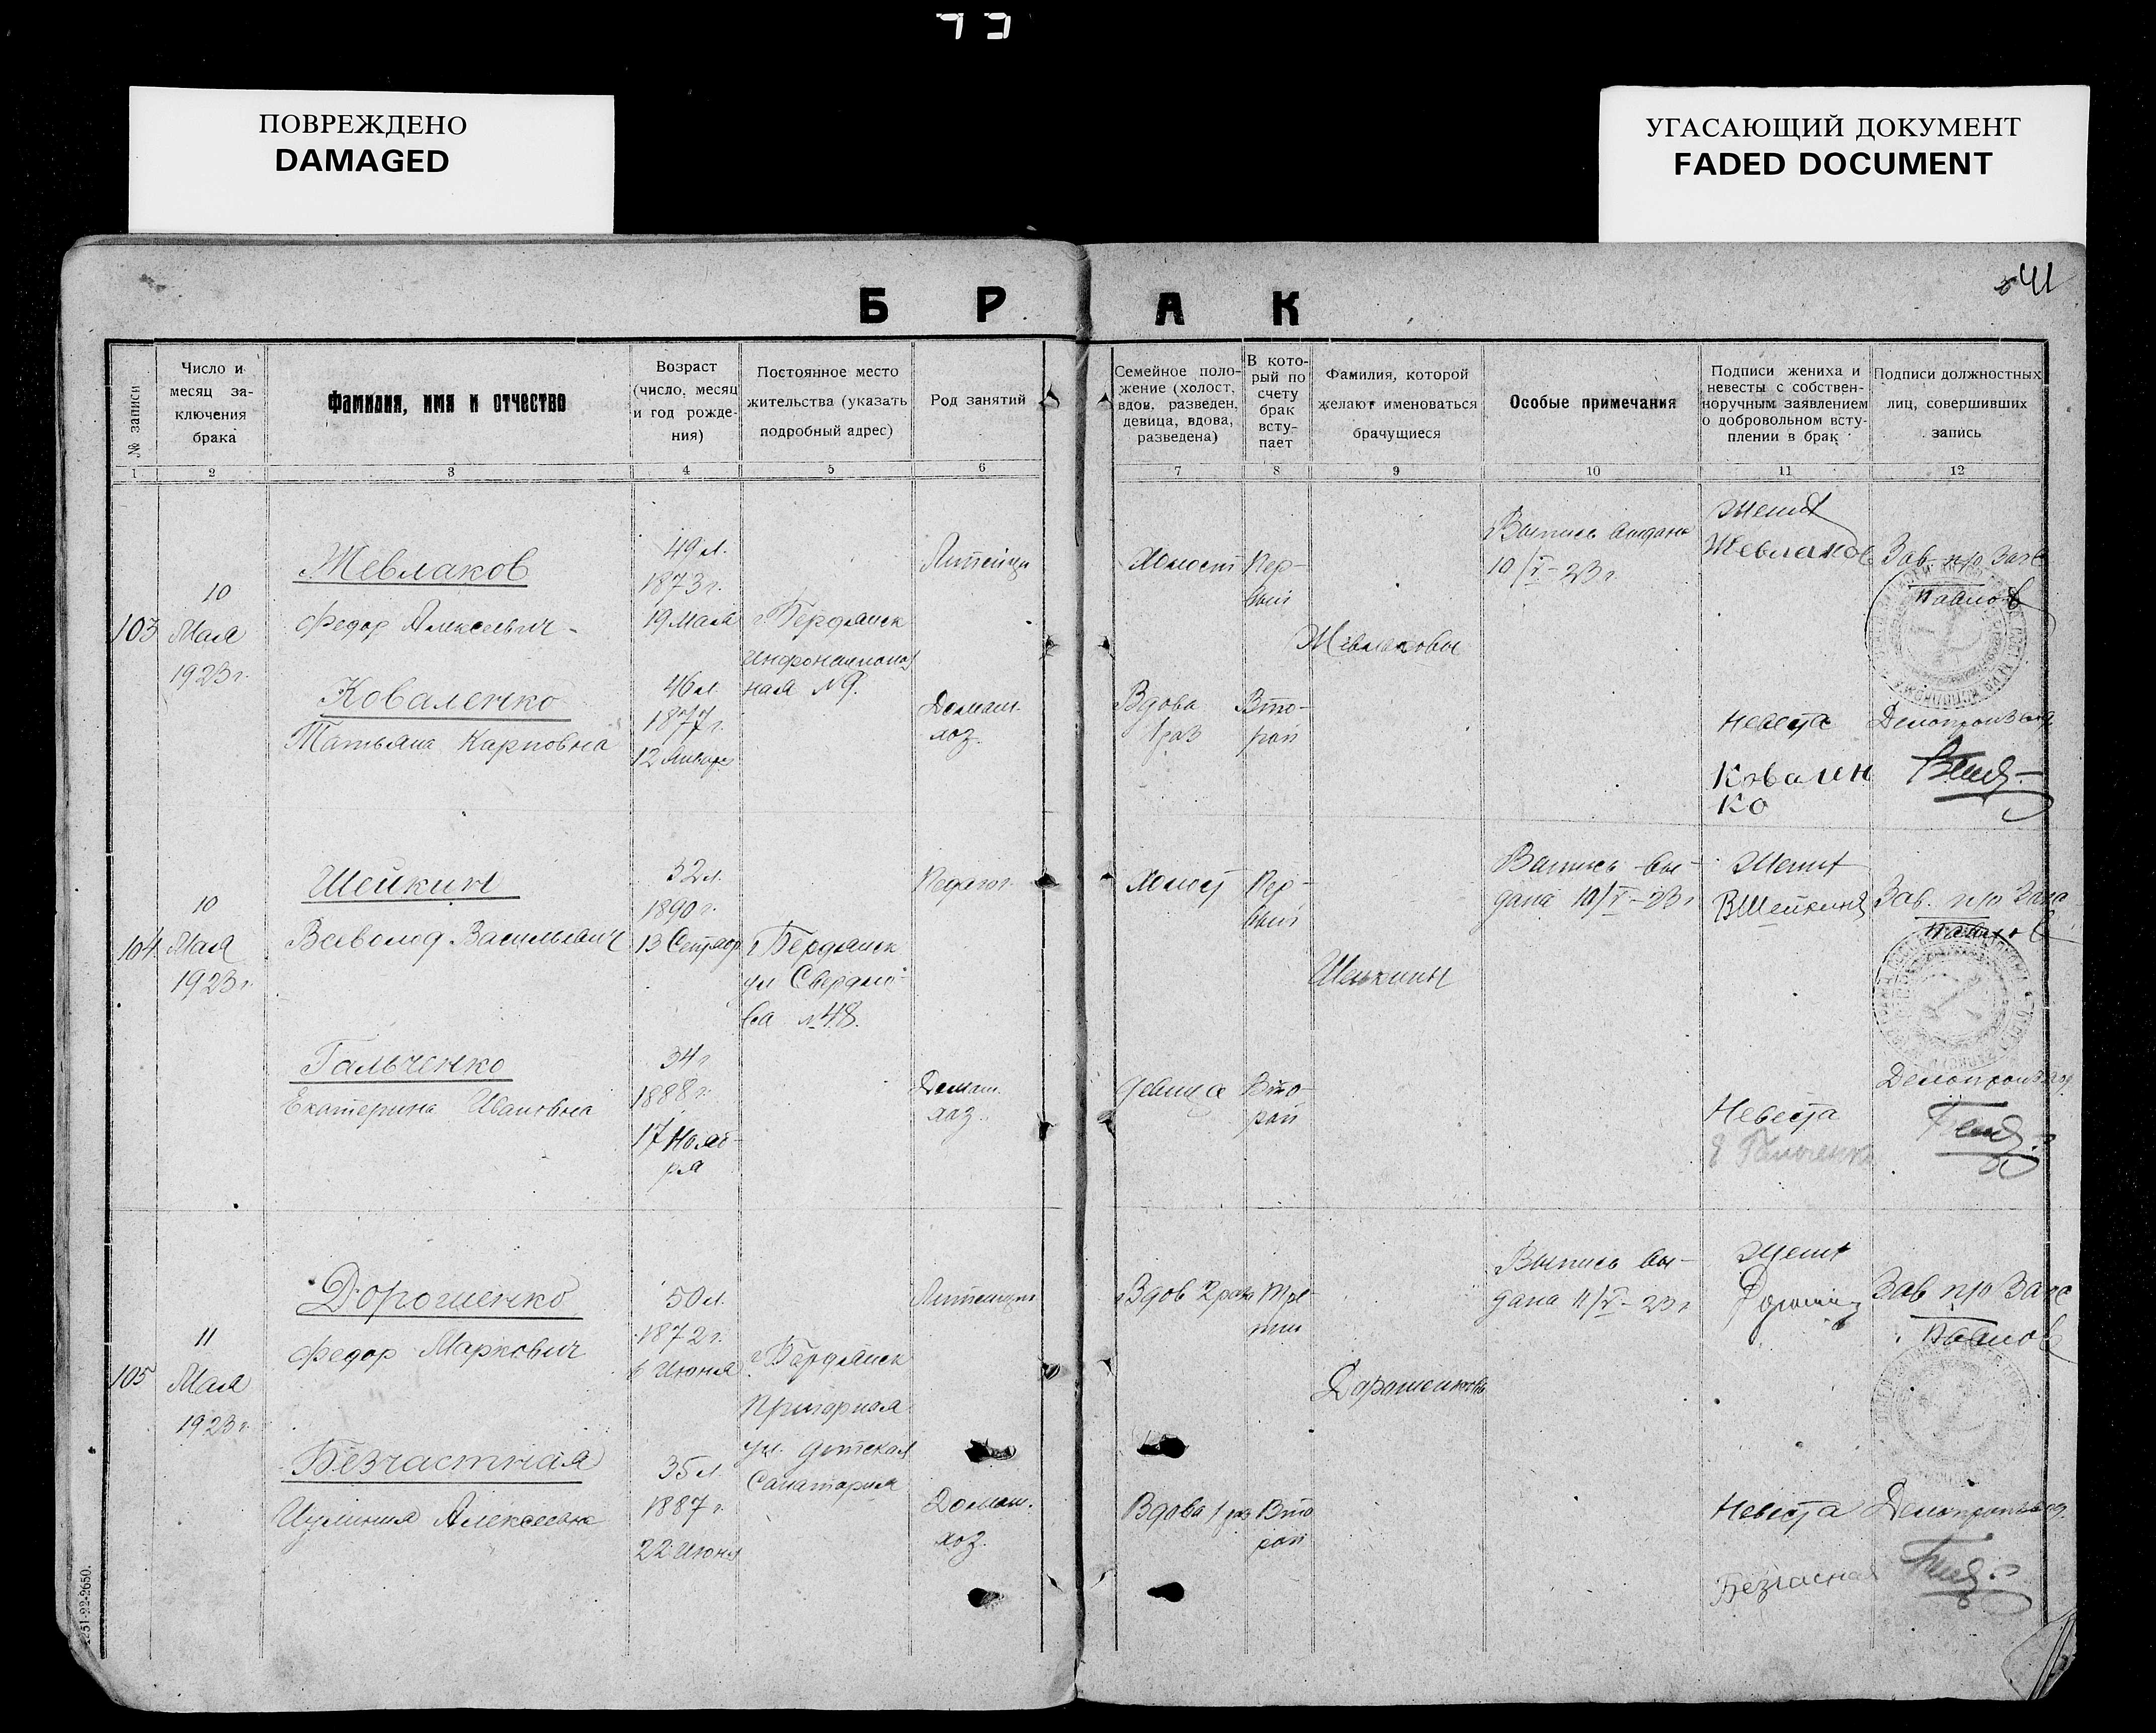 ПОВРЕЖДЕНО
DAMAGED
УГАСАЮЩИЙ ДОКУМЕНТ
FADED DOCUMENT
41
БРАК
№ записи
Число и
месяц за-
ключения
брака
Фамилия, имя и отчество
Возраст
(число, месяц
и год рожде-
ния)
Постоянное место
жительства (указать
подробный адрес)
Род занятий
Семейное поло-
жение (холост,
вдов, разведен,
девица, вдова,
разведена)
В кото-
рый по
счету
брак
всту-
пает
Фамилия, которой
желают именоваться
брачущиеся
Особые примечания
Подписи жениха и
невесты с собствен-
норучным заявлением
о добровольном всту-
плении в брак
Подписи должностных
лиц, совершивших
запись
1 2 3 4 5 6 7 8 9 10 11 12
103
10
Мая
1923 г.
Жевлаков
Федор Алексеевич
49 л.
1873 г.
19 Мая
г. Бердянск
ная № 9.
Литейщ
Холост
Пер-
вый
Жевлаковы
Выпись выдана
10/V-23 г.
Жених
Жевлаков
Зав. п/о Загс
Павлов
Коваленко
Татьяна Карповна
46 л.
1877 г.
12 Января
Домаш.
хоз.
Вдова
1 раз
Вто-
рой
Невеста
Ковален
ко
Делопроизвод
104
10
Мая
1923 г.
Шейкин
Всеволод Васильевич
32 л.
1890 г.
13 Сентябр
г. Бердянск
ул. Свердло-
ва № 48.
Педагог
Холост
Пер-
вый
Шейкины
Выпись вы-
дана 10/V-23 г.
Жених
ВШейкин
Зав. п/о Загс
Павлов
Гальченко
Екатерина Ивановна
34 г.
1888 г.
17 Нояб-
ря
Домаш.
хоз.
Девица
Вто-
рой
Невеста
Е Гальченко
Делопроизвод
105
11
Мая
1923 г.
Дорошенко
Федор Маркович
50 л.
1872 г.
6 Июня
г. Бердянск
Пригорная
ул. Детская
Санатория
Литейщик
Вдов 2 раза
Тре-
тий
Дорошенковы
Выпись вы-
дана 11/V-23 г.
Жених
Зав п/о Загс
Павлов
Безчастная
Алексеевна
35 л.
1887 г.
22 Июня
Домаш.
хоз.
Вдова 1 раз
Вто
рой
Невеста
Безчасная
Делопроизвод.
1251-22-2650.